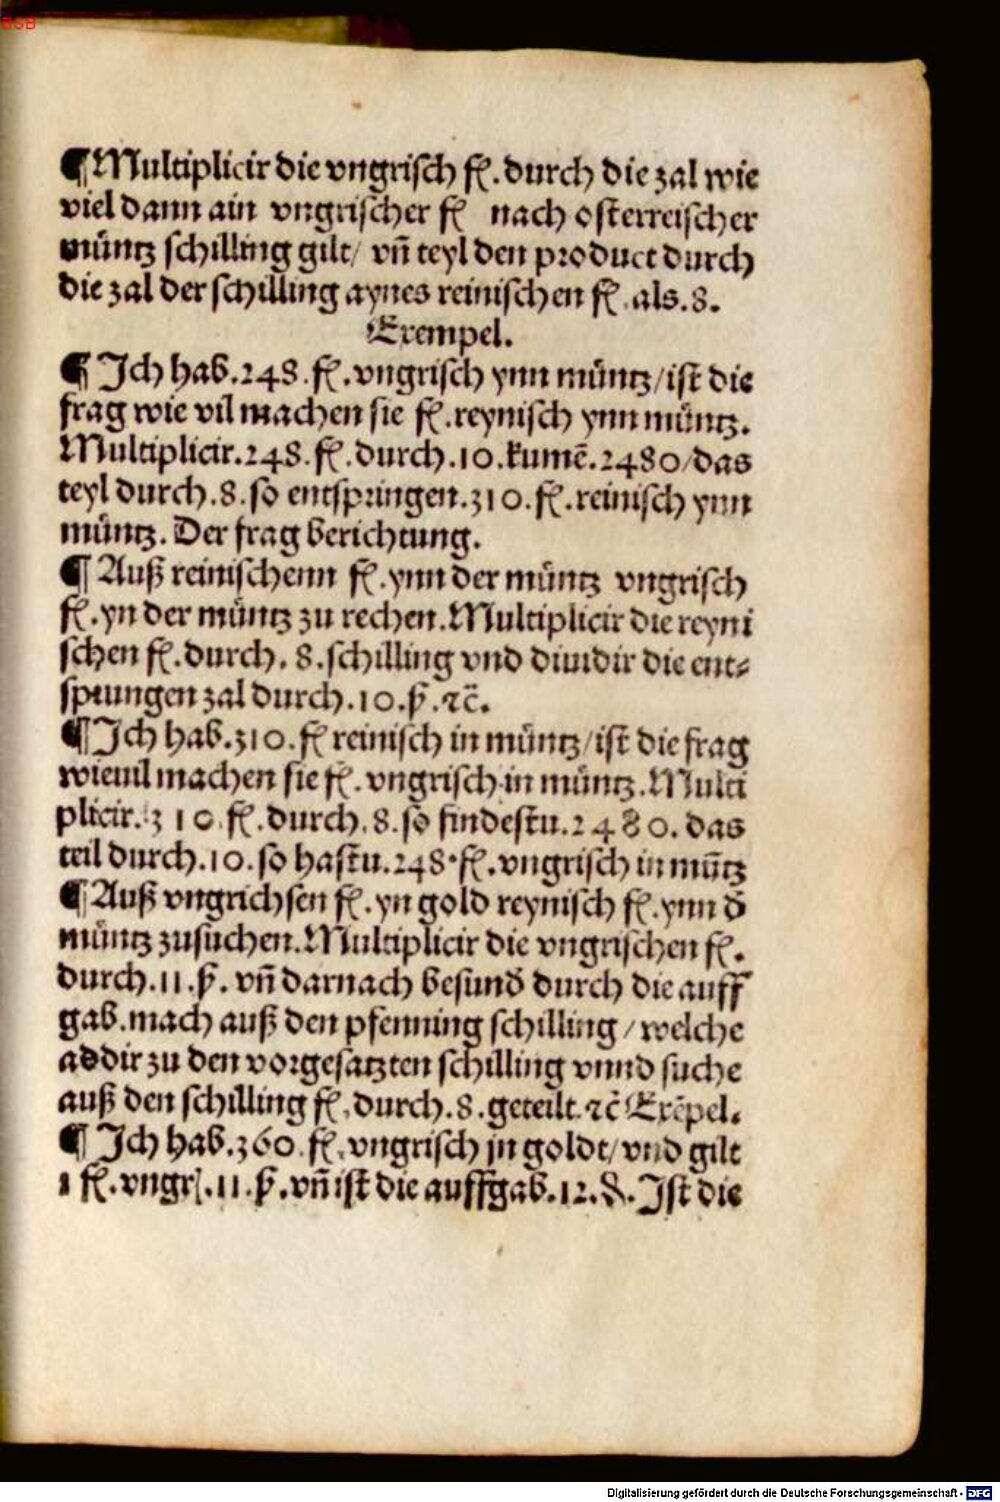 BSB
¶Multiplicir die vngrisch fl. durch die zal wie
viel dann ain vngrischer fl nach osterreischer
müntz schilling gilt/ vn̄ teyl den product durch
die zal der schilling aynes reinischen fl. als .8.
Exempel.
¶ Ich hab .248. fl. vngrisch ynn müntz/ist die
frag wie vil machen sie fl. reynisch ynn müntz.
Multiplicir .248. fl. durch .10. kumē .2480/das
teyl durch .8. so entspringen .310. fl. reinisch ynn
müntz. Der frag berichtung.
¶ Auß reinischenn fl. ynn der müntz vngrisch
fl. yn der müntz zu rechen. Multiplicir die reyni
schen fl. durch. 8. schilling vnd diuidir die ent⸗
sprungen zal durch .10. ß. ⁊c̄.
¶Ich hab .310. fl reinisch in müntz/ist die frag
wieuil machen sie fl. vngrisch in müntz. Multi
plicir. 310. fl. durch .8. so findestu .2480. das
teil durch .10. so hastu .248. fl. vngrisch in müntz
¶Auß vngrichsen fl. yn gold reynisch fl. ynn d̄
müntz zusuchen. Multiplicir die vngrischen fl.
durch .11. ß. vn̄ darnach besund̄ durch die auff
gab. mach auß den pfenning schilling / welche
addir zu den vorgesatzten schilling vnnd suche
auß den schilling fl. durch .8. geteilt. ⁊c̄ Exēpel.
¶ Ich hab .360. fl. vngrisch jn goldt/ vnd gilt
1 fl. vngr. .11. ß. vn̄ ist die auffgab .12. ₰. Jst die
Digitalisierung gefördert durch die Deutsche Forschungsgemeinschaft - DFG